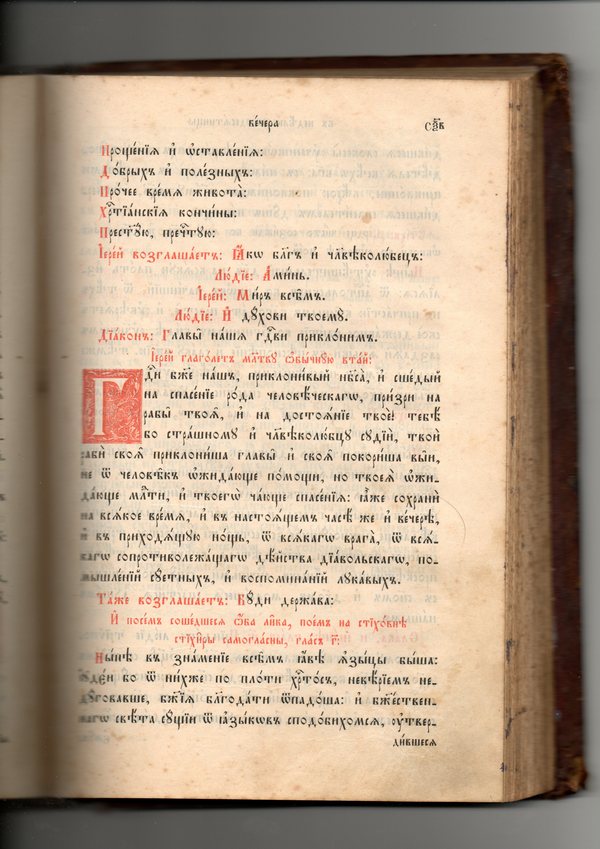 ве́чера Сл҃в
Проще́нїѧ и҆ ѡ҆ставле́нїѧ:
До́брыхъ и҆ поле́зныхъ:
Про́чее вре́мѧ живота̀:
Хрⷭ҇тїа́нскїѧ кончи́ны:
Прест҃ꙋ́ю, пречⷭ҇тꙋю:
І҆ере́й возглаша́етъ: Ꙗ҆́кѡ бл҃гъ и҆ чл҃вѣколю́бецъ:
Лю́дїе: А҆ми́нь.
І҆ере́й: Ми́ръ всѣ̑мъ.
Лю́дїе: И҆ дꙋ́хови твоемꙋ̀.
Дїа́конъ: Главы̑ на́шѧ гдⷭ҇ви приклони́мъ.
І҆ере́й глаго́летъ мл҃твꙋ ѡ҆бы́чнꙋю вта́й:
Гдⷭ҇и бж҃е на́шъ, приклони́вый нб҃са̀, и҆ сше́дый
на спасе́нїе ро́да человѣ́ческагѡ, при́зри на
рабы̑ твоѧ̑, и҆ на достоѧ́нїе твоѐ! тебѣ́
бо стра́шномꙋ и҆ чл҃вѣколю́бцꙋ сꙋдїѝ, твоѝ
рабѝ своѧ̑ приклони́ша главы̑ и҆ своѧ̑ покори́ша вы̑и,
не ѿ человѣ̑къ ѡ҆жида́юще по́мощи, но твоеѧ̀ ѡ҆жи-
да́юще мл҃ти, и҆ твоегѡ̀ ча́юще спасе́нїѧ: ꙗ҆̀же сохранѝ
на всѧ́кое вре́мѧ, и҆ въ настоѧ́щемъ часѣ̀ же и҆ ве́черѣ,
и҆ въ приходѧ́щꙋю но́щь, ѿ всѧ́кагѡ врага̀, ѿ всѧ́-
кагѡ сопротиволежа́щагѡ дѣ́йства дїа́вольскагѡ, по-
мышле́нїй сꙋ́етныхъ, и҆ воспомина́нїй лꙋка́выхъ.
Та́же возглаша́етъ: Бꙋ́ди держа́ва:
И҆ посе́мъ соше́дшесѧ ѻ҆́ба ли̑ка, пое́мъ на стїхо́внѣ
стїхи̑ры самогла̑сны, гла́съ г҃:
Ны́нѣ въ зна́менїе всѣ̑мъ ꙗ҆́вѣ ѧ҆зы́цы бы́ша:
і҆ꙋде́и бо ѿ ни́хже по пло́ти хрⷭ҇то́съ, невѣ́рїемъ не-
дꙋ́говавше, бж҃їѧ блгⷣти ѿпадо́ша: и҆ бжⷭ҇твен-
нагѡ свѣ́та сꙋ́щїи ѿ ꙗ҆зы́кѡвъ сподо́бихомсѧ, ᲂу҆твер-
ди́вшесѧ